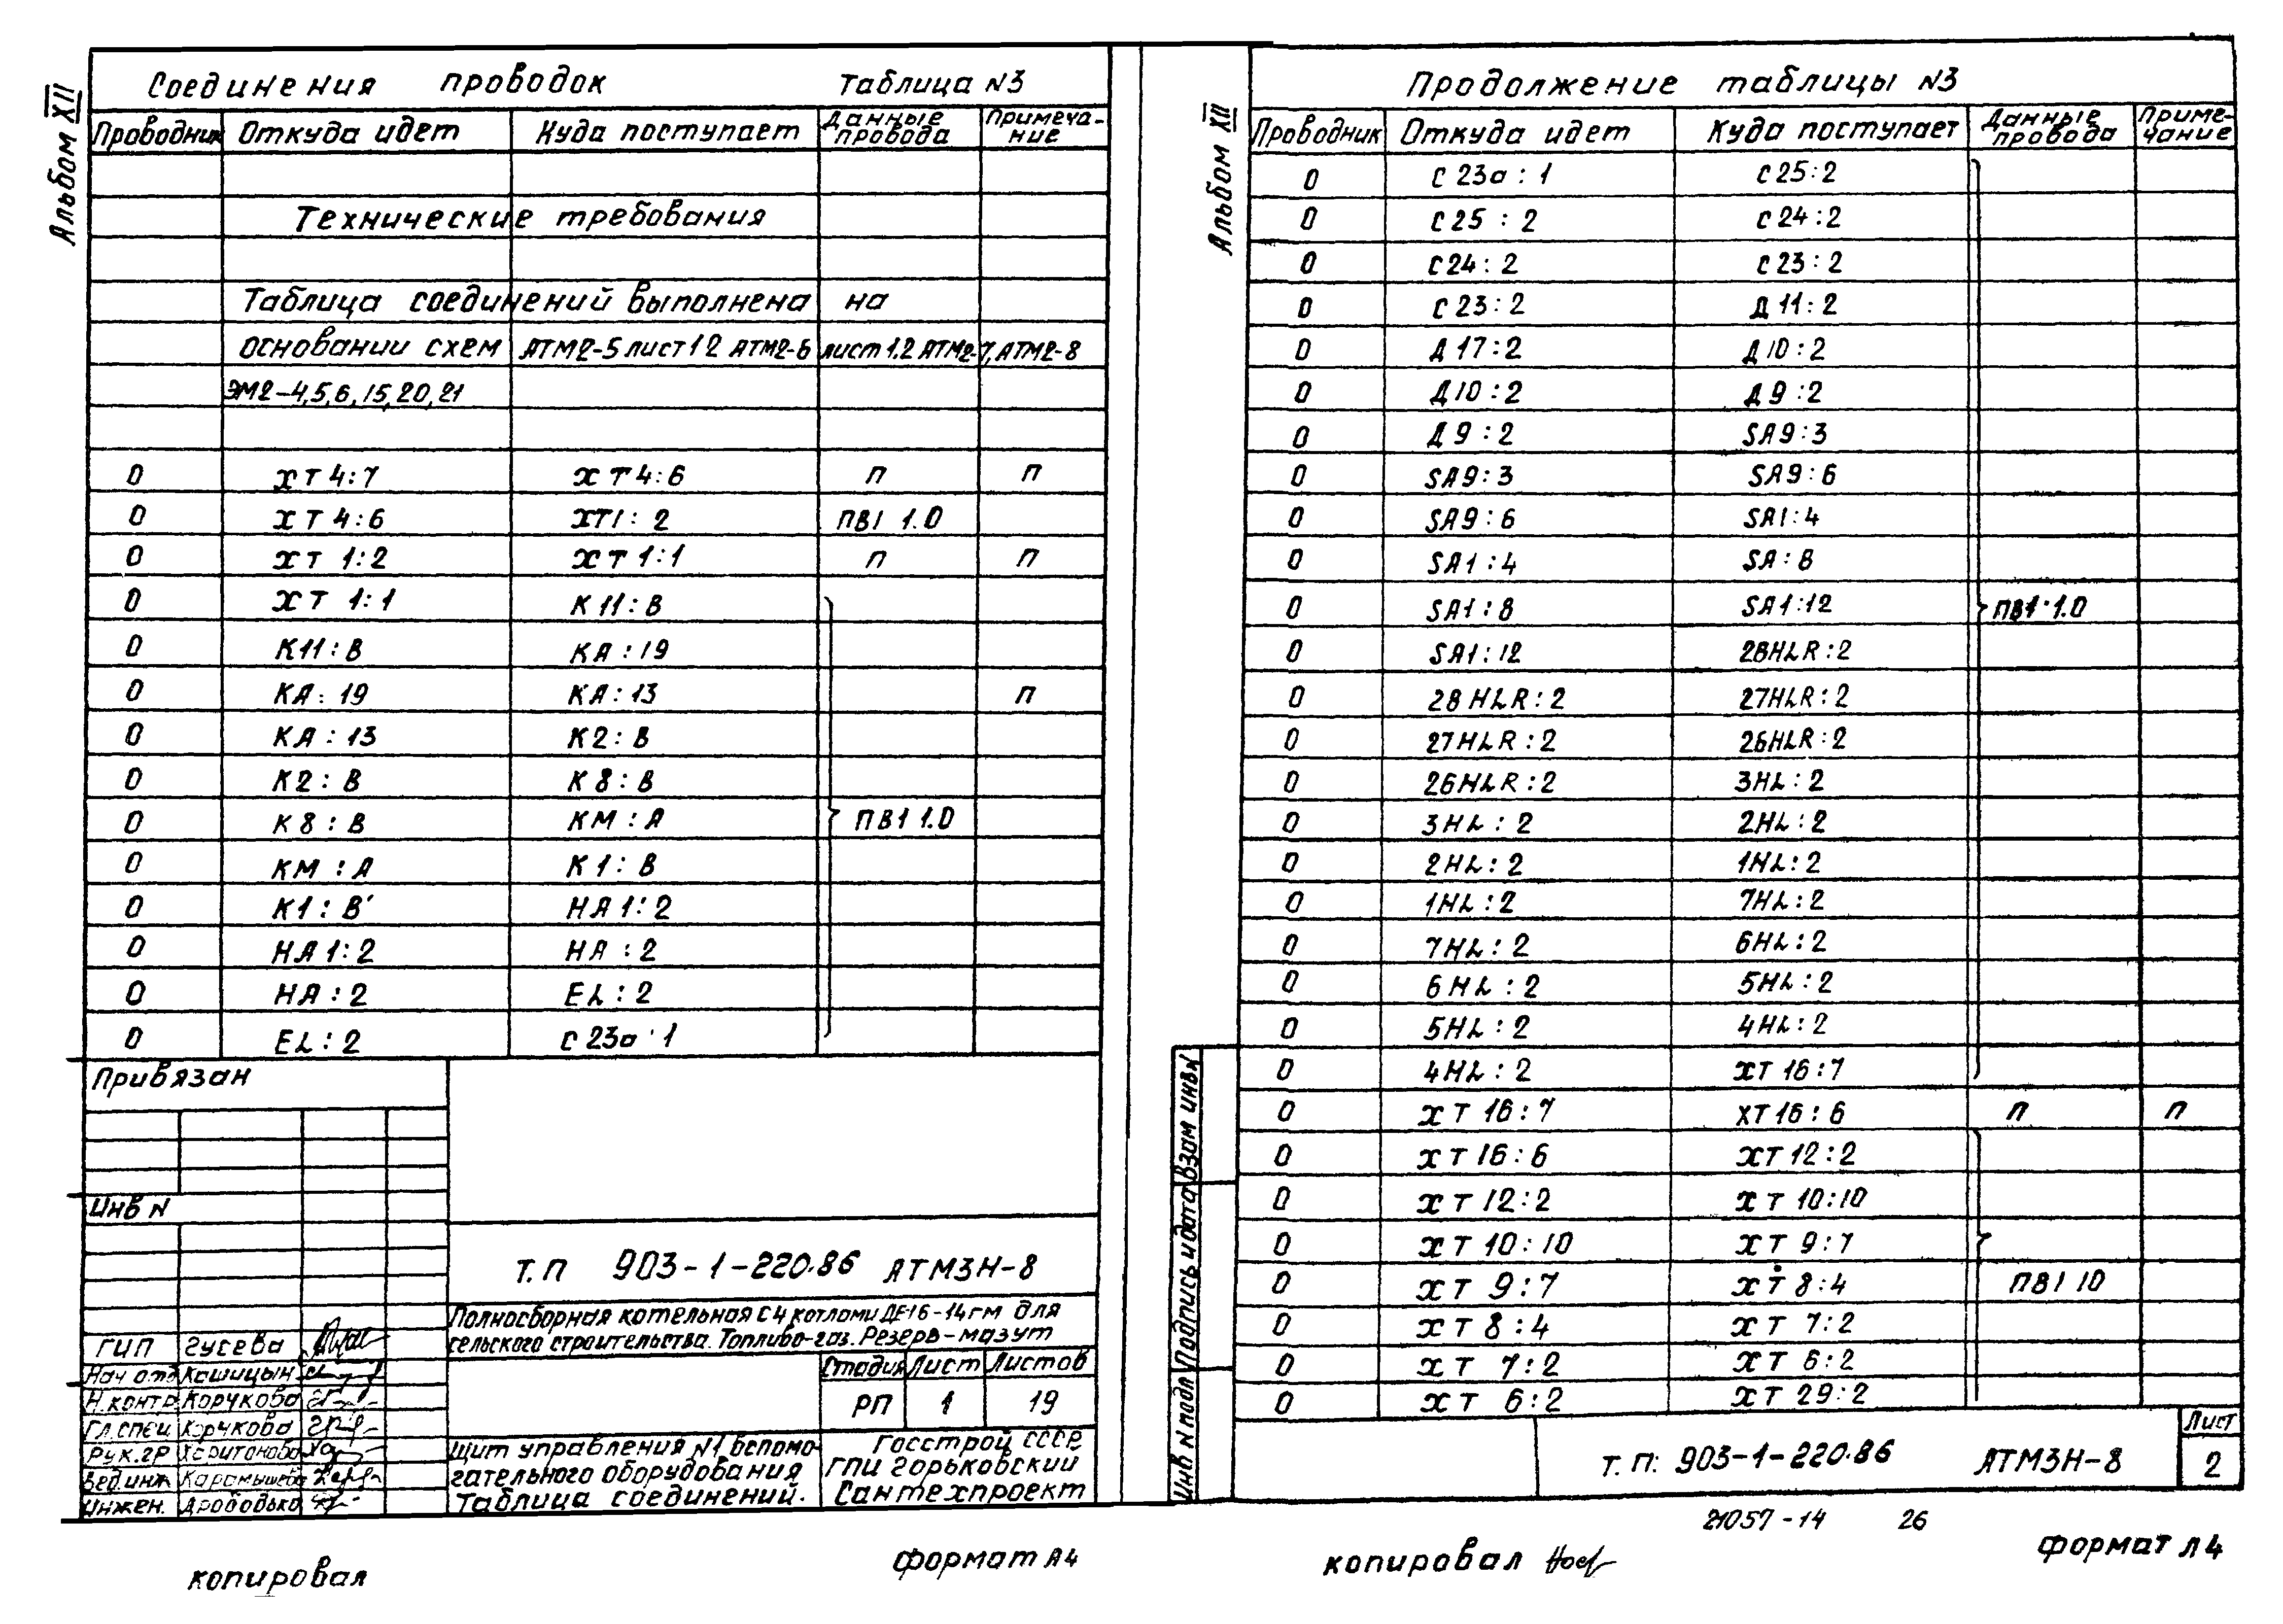 Альбом XII
Соединения проводок Таблица N3
Проводник Откуда идет Куда поступает Данные провода Примечание
Технические требования
Таблица соединений выполнена на
основании схем АТМ2-5 лист 1 2 АТМ2-6 лист 1.2 АТМ2-7, АТМ2-8
ЭМ2-4,5,6,15,20,21
0 ХТ4:7 ХТ4:6 п п
0 ХТ4:6 ХТ1:2 ПВ1 1.0
0 ХТ 1:2 ХТ 1:1 п п
0 ХТ 1:1 К11:В
0 К11:В КА:19
0 КА:19 КА:13 п
0 КА:13 К2:В
0 К2:В К8:В
0 К8:В КМ:А ПВ1 1.0
0 КМ:А К1:В
0 К1:В НА1:2
0 НА1:2 НА:2
0 НА:2 EL:2
0 EL:2 С23а:1
Привязан
Инв N
Т.П 903-1-220.86 АТМ3Н-8
Полносборная котельная с 4 котлами ДЕ16-14гм для
сельского строительства. Топливо-газ. Резерв-мазут
ГИП Гусева
Нач отд Кашицын
Н.контр Корчкова
Гл.спец Корчкова
Рук.гр Харитонова
Вед.инж Карамышева
Инжен. Дрободько
Стадия Лист Листов
РП 1 19
Щит управления N1 вспомо-
гательного оборудования
Таблица соединений.
Госстрой СССР
ГПИ Горьковский
Сантехпроект
копировал формат А4
Альбом XII
Продолжение таблицы N3
Проводник Откуда идет Куда поступает Данные провода Примечание
0 С23а:1 С25:2
0 С25:2 С24:2
0 С24:2 С23:2
0 С23:2 Д11:2
0 Д17:2 Д10:2
0 Д10:2 Д9:2
0 Д9:2 SA9:3
0 SA9:3 SA9:6
0 SA9:6 SA1:4
0 SA1:4 SA:8
0 SA1:8 SA1:12 ПВ1 1.0
0 SA1:12 28HLR:2
0 28HLR:2 27HLR:2
0 27HLR:2 26HLR:2
0 26HLR:2 3HL:2
0 3HL:2 2HL:2
0 2HL:2 1HL:2
0 1HL:2 7HL:2
0 7HL:2 6HL:2
0 6HL:2 5HL:2
0 5HL:2 4HL:2
0 4HL:2 ХТ16:7
0 ХТ16:7 ХТ16:6 п п
0 ХТ16:6 ХТ12:2
0 ХТ12:2 ХТ10:10
0 ХТ10:10 ХТ9:7
0 ХТ9:7 ХТ8:4 ПВ1 10
0 ХТ8:4 ХТ 7:2
0 ХТ 7:2 ХТ 6:2
0 ХТ 6:2 ХТ 29:2
Взам инв N
Подпись и дата
Инв N подл
Т.П: 903-1-220.86 АТМ3Н-8
Лист
2
21057-14 26
копировал формат А4